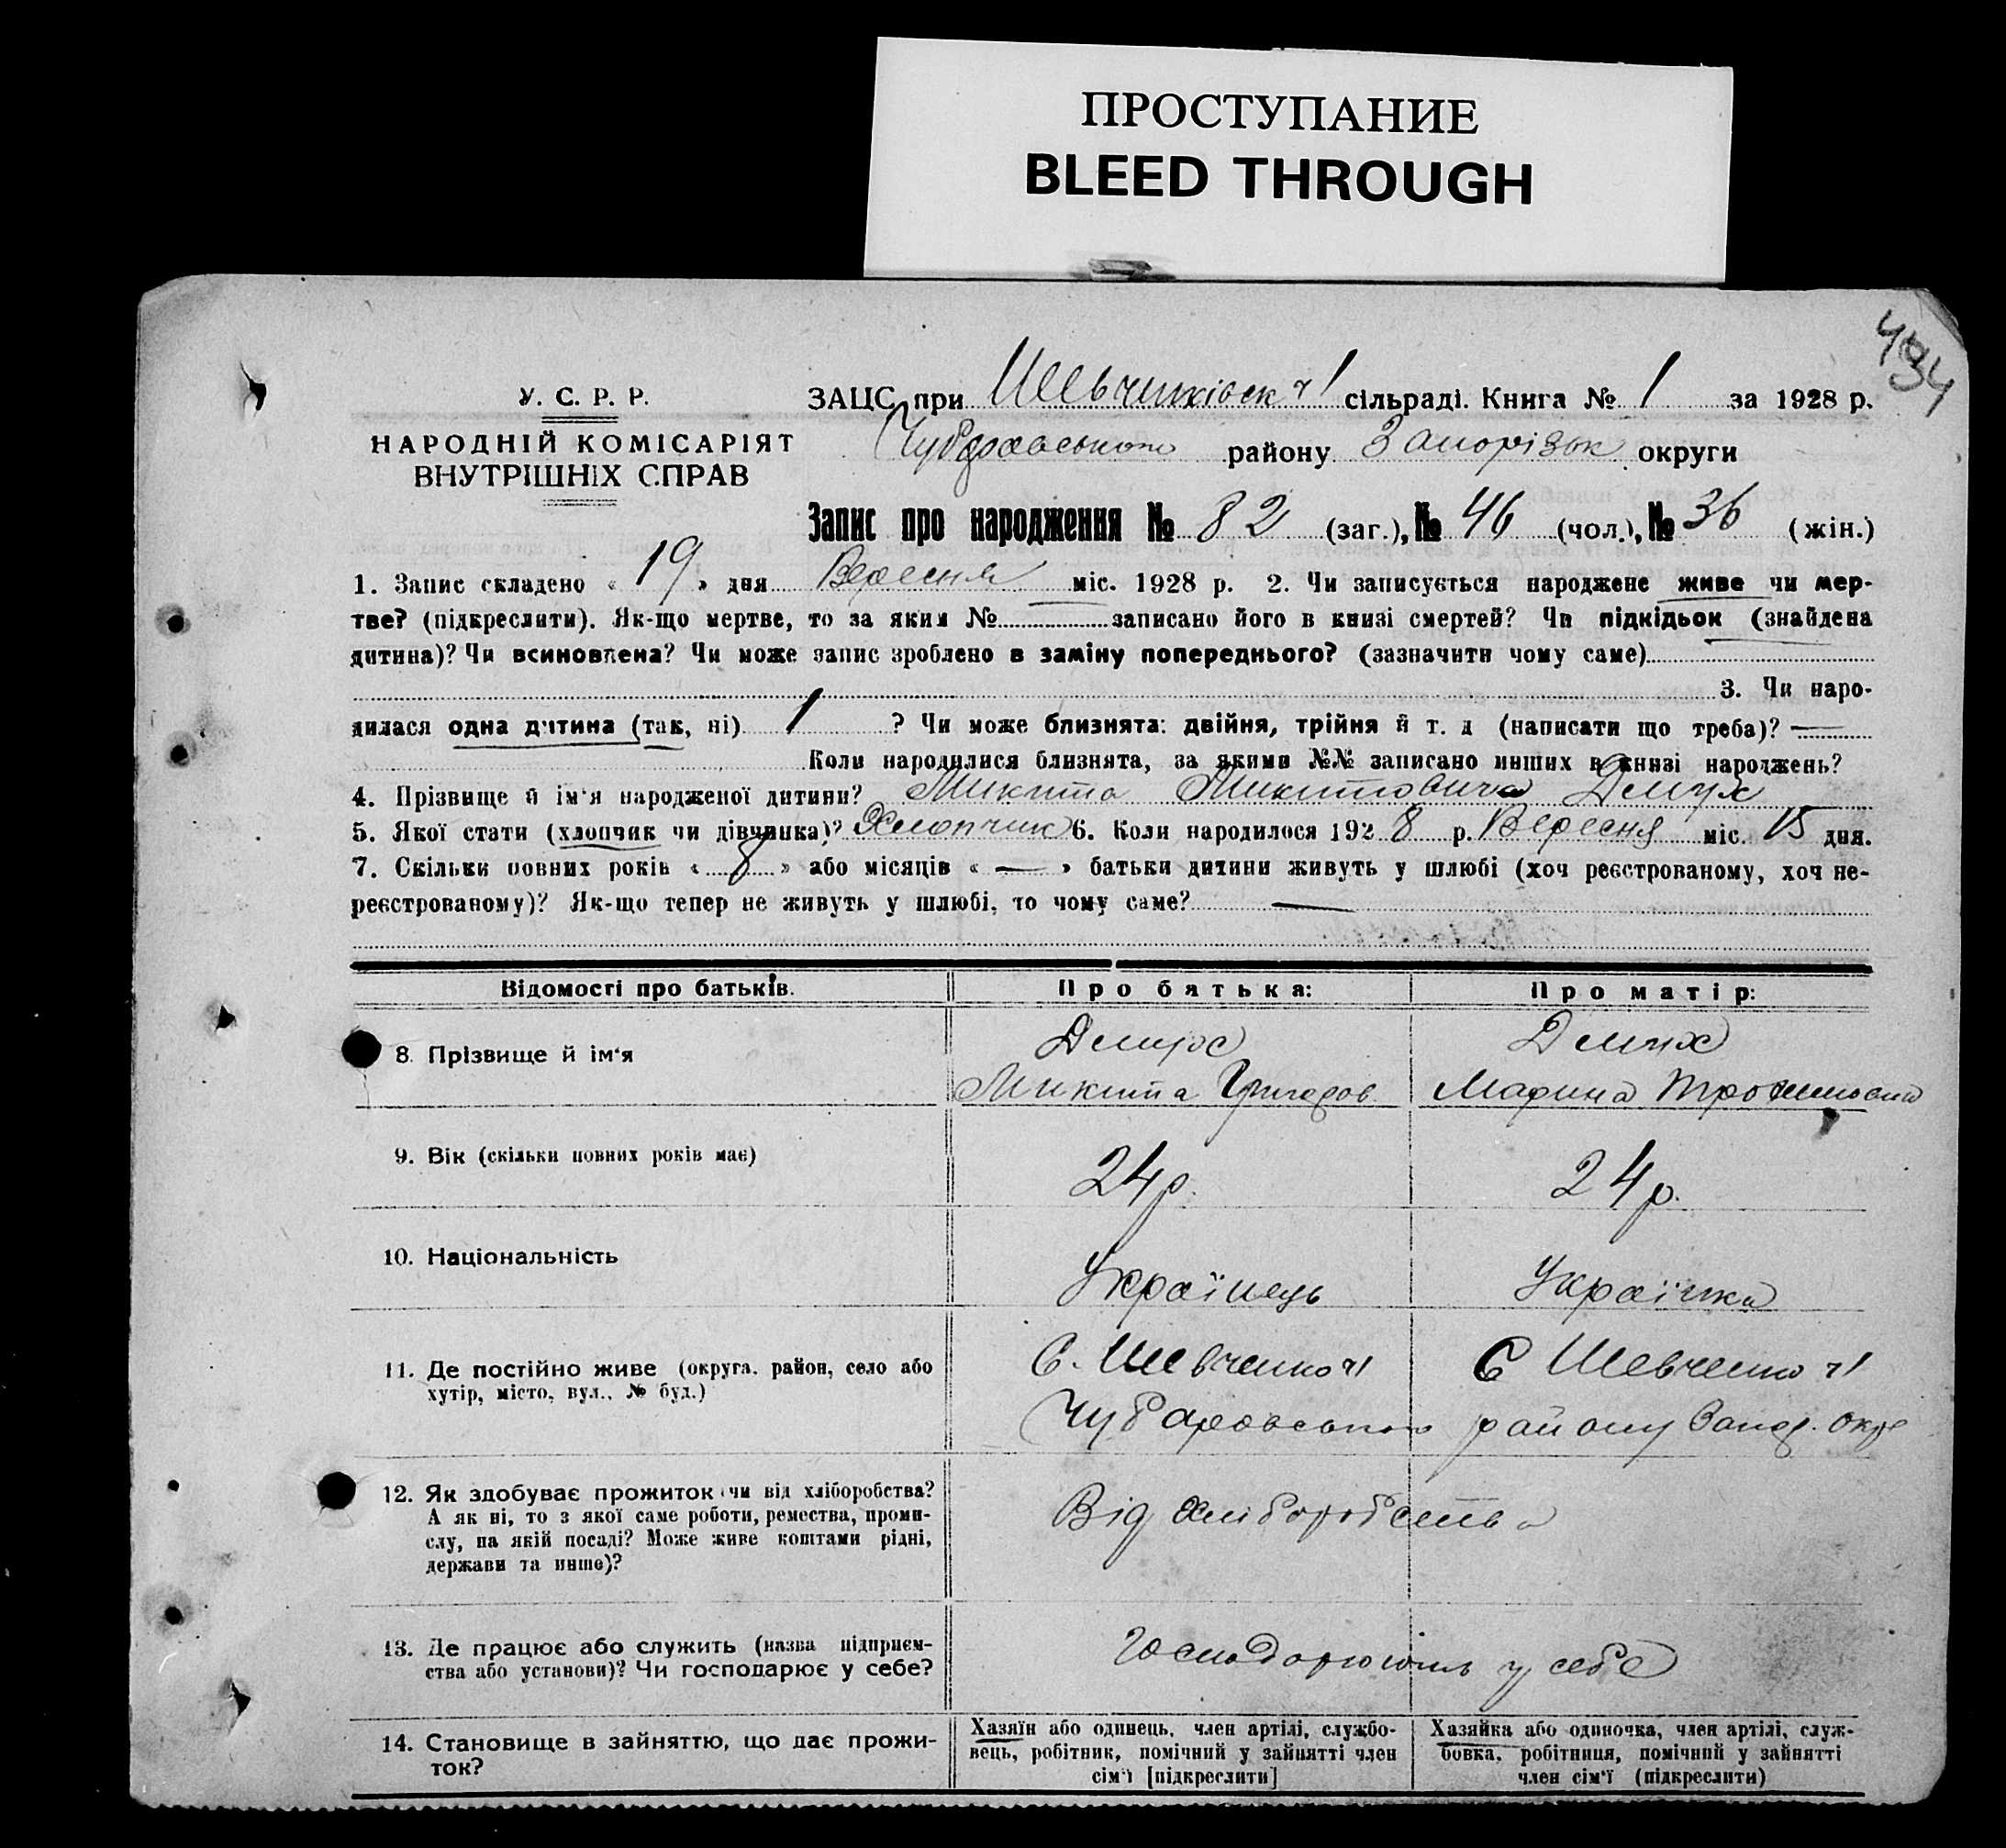 ПРОСТУПАНИЕ
BLEED THROUGH
494
У. С. Р. Р.
НАРОДНІЙ КОМІСАРІЯТ
ВНУТРІШНІХ СПРАВ
ЗАЦС при Шевченківск ч1 сільраді. Книга № 1 за 1928 р.
Чубарівського району Запорізьк округи
Запис про народження № 82 (заг.), № 46 (чол.), № 36 (жін.)
1. Запис складено « 19 » дня Вересня міс. 1928 р. 2. Чи записується народжене живе чи мер-
тве? (підкреслити). Як-що мертве, то за яким № записано його в книзі смертей? Чи підкідьок (знайдена
дитина)? Чи всиновлена? Чи може запис зроблено в заміну попереднього? (зазначити чому саме)
3. Чи наро-
дилася одна дитина (так, ні) 1 ? Чи може близнята: двійня, трійня й т. д (написати що треба)? —
Коли народилися близнята, за якими №№ записано инших в книзі народжень?
4. Прізвище й ім'я народженої дитини? Микита Микитович Демух
5. Якої стати (хлопчик чи дівчинка)? Хлопчик 6. Коли народилося 1928 р. Вересня міс. 15 дня.
7. Скільки повних років « 8 » або місяців « — » батьки дитини живуть у шлюбі (хоч реєстрованому, хоч не-
реєстрованому)? Як-що тепер не живуть у шлюбі, то чому саме? —
Відомості про батьків. Про батька: Про матір:
8. Прізвище й ім'я
Демух
Микита Григоров
Демух
Марина Трохимовна
9. Вік (скільки повних років має) 24р. 24р.
10. Національність Українець Українка
11. Де постійно живе (округа, район, село або
хутір, місто, вул., № буд.)
С. Шевченко ч1 С Шевченко ч1
Чубаровського району Запор. окр
12. Як здобуває прожиток (чи від хліборобства?
А як ні, то з якої саме роботи, ремества, проми-
слу, на якій посаді? Може живе коштами рідні,
держави та инше)?
Від хліборобства
13. Де працює або служить (назва підприєм-
ства або установи)? Чи господарює у себе?
Господарюють у себе
14. Становище в зайняттю, що дає прожи-
ток?
Хазяїн або одинець, член артілі, службо-
вець, робітник, помічний у зайнятті член
сім'ї [підкреслити]
Хазяйка або одиночка, член артілі, служ-
бовка, робітниця, помічний у зайнятті
член сім'ї (підкреслити)